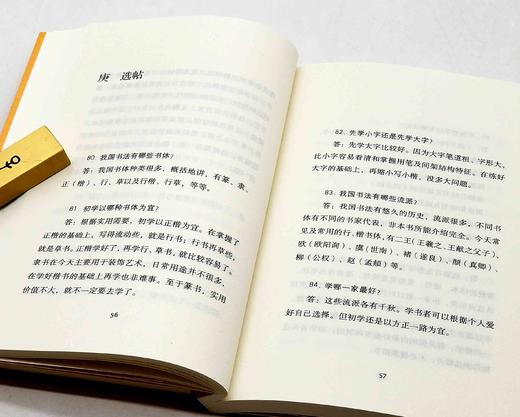 庚　选帖
80. 我国书法有哪些书体？
答：我国书体种类很多，概括地讲，有篆、隶、
正（楷）、行、草以及行楷、行草，等等。
81. 初学以哪种书体为宜？
答：根据实用需要，初学以正楷为宜。在掌握了
正楷的基础上，写得流动些，就是行书；行书再草些，
就是草书。正楷学好了，再学行、草书，就比较容易了。
隶书在今天主要用于装饰艺术，日常用途并不很多，
在学好楷书的基础上再学也非难事。至于篆书，实用
价值不大，就不一定要去学了。
56
82. 先学小字还是先学大字？
答：先学大字比较好。因为大字笔道粗、字形大，
比小字容易看清和掌握用笔及间架结构特征。在练好
大字的基础上，再缩小写小楷，没多大问题。
83. 我国书法有哪些流派？
答：我国书法有悠久的历史，流派很多，不同书
体有不同的书家代表，非本书所能介绍完全。今天常
见及常用的行、楷书体，有二王（王羲之、王献之父子）、
欧（欧阳询）、虞（世南）、褚（遂良）、颜（真卿）、
柳（公权）、赵（孟頫）等。
84. 学哪一家最好？
答：这些流派各有千秋。学书者可以根据个人爱
好自己选择。但初学还是以方正一路为宜。
57